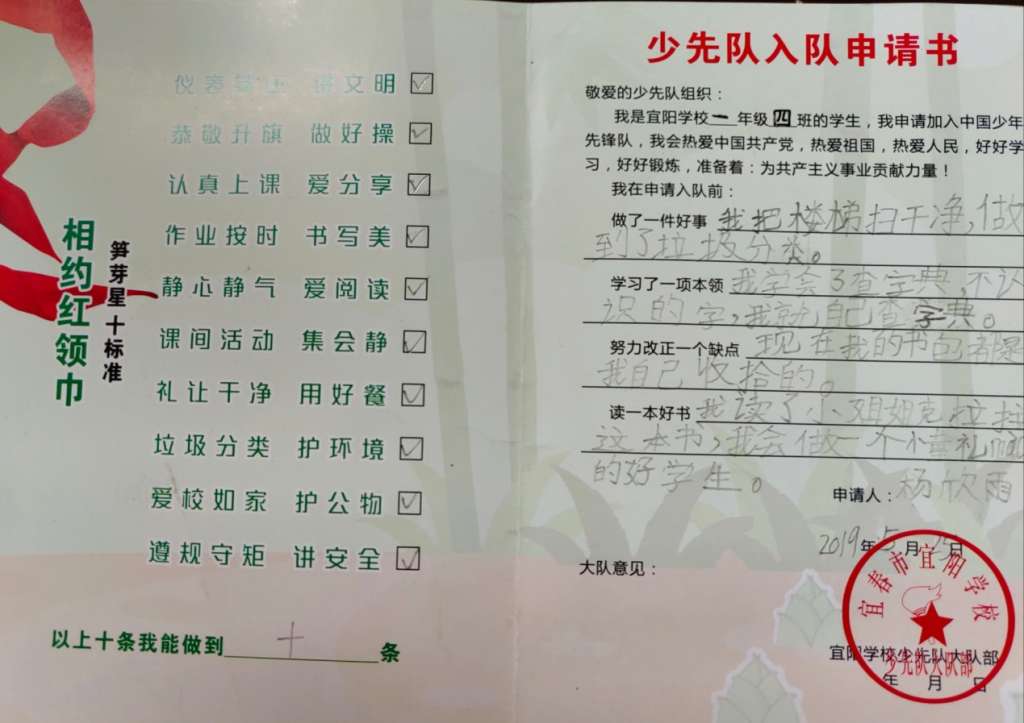 相约红领巾
笋芽星十标准
仪表端正 讲文明
恭敬升旗 做好操
认真上课 爱分享
作业按时 书写美
静心静气 爱阅读
课间活动 集会静
礼让干净 用好餐
垃圾分类 护环境
爱校如家 护公物
遵规守矩 讲安全
以上十条我能做到 十 条
少先队入队申请书
敬爱的少先队组织：
我是宜阳学校一年级四班的学生，我申请加入中国少年
先锋队，我会热爱中国共产党，热爱祖国，热爱人民，好好学
习，好好锻炼，准备着：为共产主义事业贡献力量！
我在申请入队前：
做了一件好事 我把楼梯扫干净，做
到了垃圾分类。
学习了一项本领 我学会了查字典，不认
识的字，我就自己查字典。
努力改正一个缺点 现在我的书包都是
我自己收拾的。
读一本好书 我读了小姐姐克拉拉
这本书，我会做一个懂礼貌
的好学生。
申请人：杨欣雨
2019年5月25日
大队意见：
宜春市宜阳学校
少先队大队部
宜阳学校少先队大队部
年 月 日